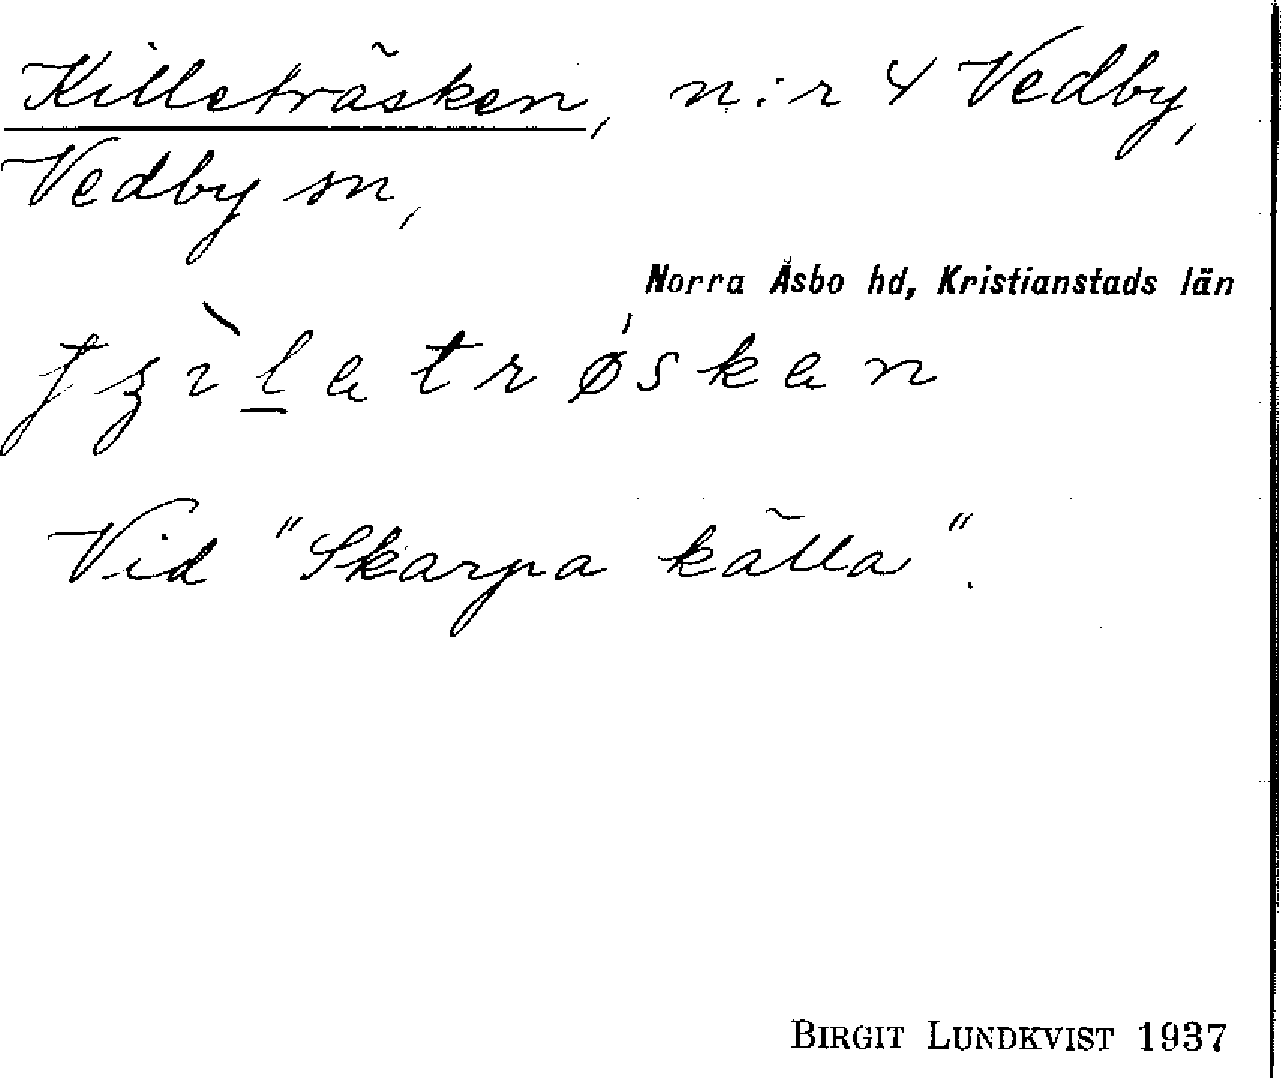 Killeträsken, n:r 4 Vedby,
Vedby sn,
Norra Åsbo hd, Kristianstads län
Vid "Skarpa källa".
BIRGIT LUNDKVIST 1937